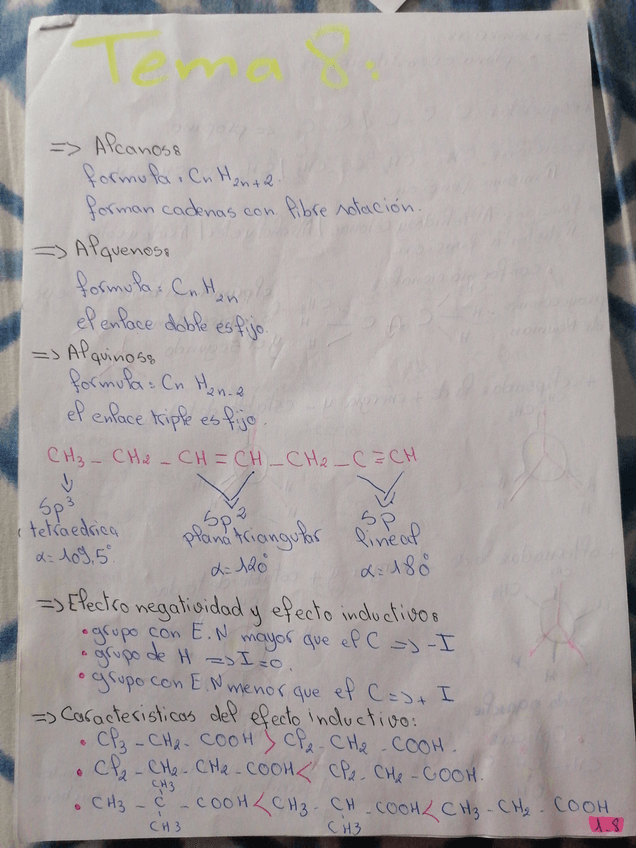 Tema 8:
=> Alcanos:
formula: CnH2n+2.
forman cadenas con libre rotación.
=> Alquenos:
formula: CnH2n
el enlace doble es fijo.
=> Alquinos:
formula: CnH2n-2
el enlace triple es fijo.
CH3 - CH2 - CH = CH - CH2 - C ≡ CH
sp3 sp2 sp
tetraedrica plana triangular lineal
α=109,5° α=120° α=180°
=> Electro negatividad y efecto inductivo:
• grupo con E.N mayor que el C => -I
• grupo de H => I=0.
• grupo con E.N menor que el C => + I
=> Caracteristicas del efecto inductivo:
• Cl3 - CH2 - COOH > Cl2 - CH2 - COOH.
• Cl2 - CH2 - CH2 - COOH < Cl2 - CH2 - COOH.
CH3
• CH3 - C - COOH < CH3 - CH - COOH < CH3 - CH2 - COOH
CH3 CH3
1.8